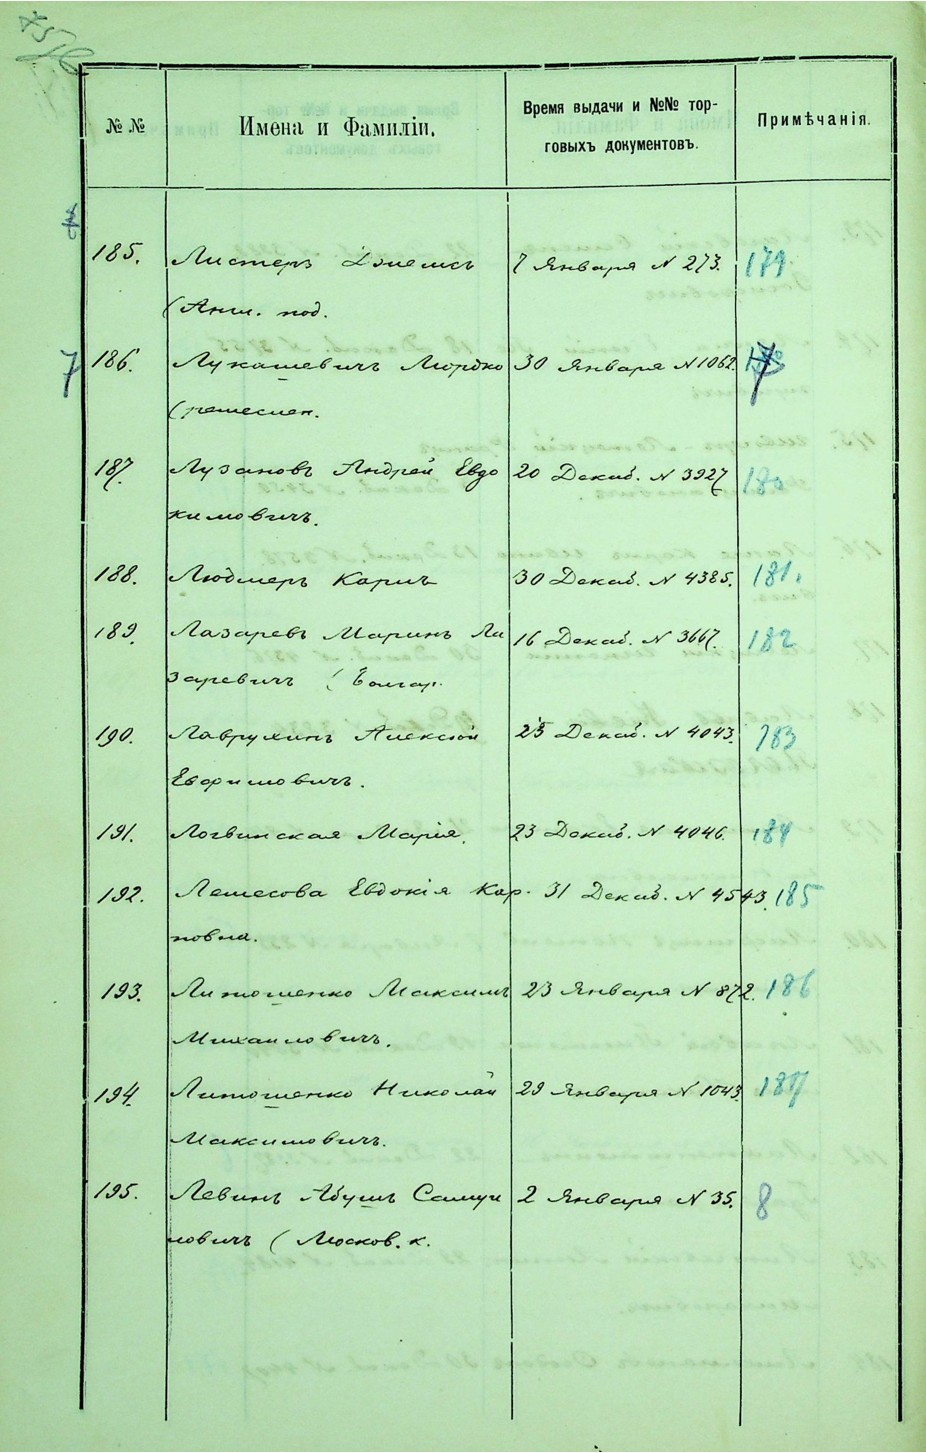 № №
Имена и Фамиліи.
Время выдачи и №№ тор-
говыхъ документовъ.
Примѣчанія.
185. Листеръ Джемсъ 7 Января N 273. 179
(Англ. под.
7 186. Лукашевичъ Мордко 30 Января N 1062. 7
(ремеслен.
187. Лузановъ Андрей Евдо 20 Декаб. N 3927 180
кимовичъ.
188. Людмеръ Карлъ 30 Декаб. N 4385. 181.
189. Лазаревъ Маринъ Ла 16 Декаб. N 3667. 182
заревичъ (Болгар.
190. Лаврухинъ Алексѣй 23 Декаб. N 4043. 183
Евфимовичъ.
191. Логвинская Марія. 23 Декаб. N 4046. 184
192. Лемесова Евдокія Кар. 31 Декаб. N 4543. 185
повна.
193. Литошенко Максимъ 23 Января N 872. 186
Михайловичъ.
194. Литошенко Николай 29 Января N 1043. 187
Максимовичъ.
195. Левинъ Абушъ Самуи 2 Января N 35. 8
ловичъ (Москов. к.